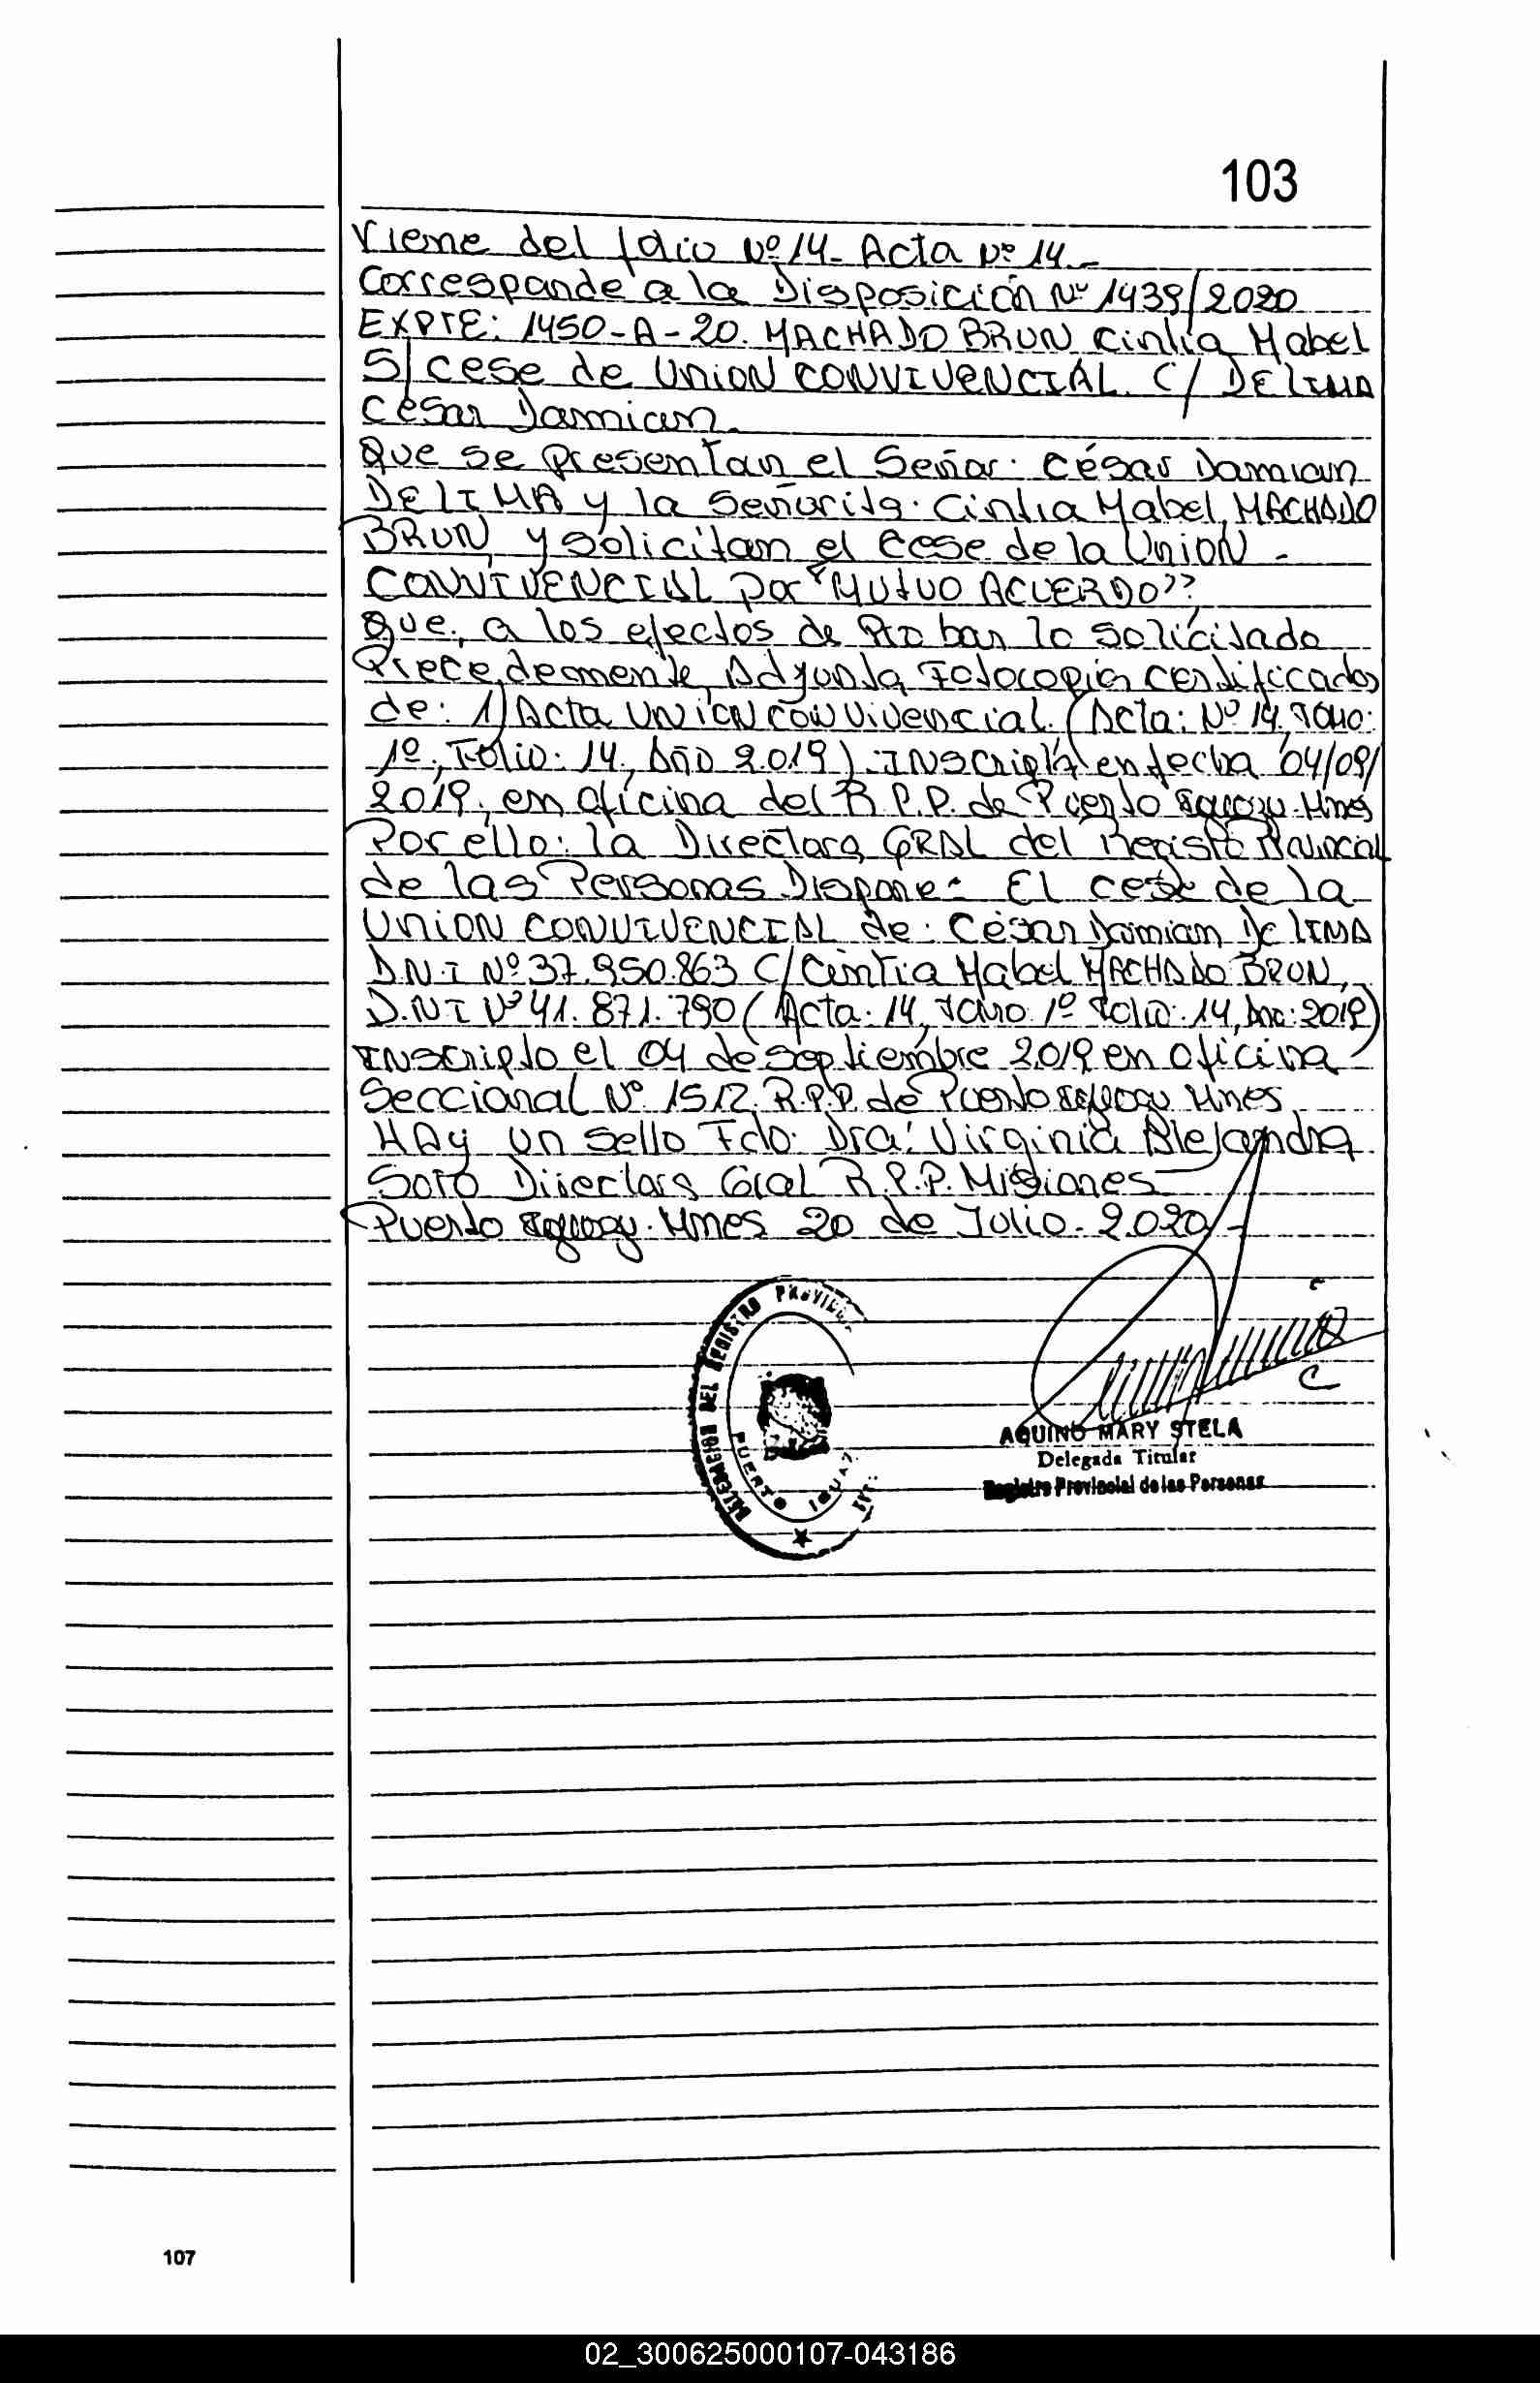 103
Viene del folio Nº 14- Acta Nº 14.-
Corresponde a la Disposición Nº 1439/2020
EXPTE: 1450-A-20. MACHADO BRUN Cintia Mabel
S/ cese de UNION CONVIVENCIAL. C/ DE LIMA
César Damian.
Que se presentan el Señor: César Damian
DE LIMA y la Señorita: Cintia Mabel, MACHADO
BRUN, y solicitan el cese de la UNION -
CONVIVENCIAL por "MUTUO ACUERDO";
Que, a los efectos de Probar lo solicitado
Precedemente, Adjunta Fotocopias certificados
de: 1) Acta UNION CONVIVENCIAL. (Acta: Nº 14, TOMO:
1º, Folio: 14, Año 2.019). INscripta en fecha 04/09/
2019, en oficina del R.P.P. de Puerto Iguazu. Mnes
Por ello: la Directora GRAL del Registro Provincial
de las Personas Dispone: El cese de la
UNION CONVIVENCIAL de: César Damian De LIMA
D.N.I Nº 37.950.863 C/ Cintia Mabel MACHADO BRUN,
D.N.I Nº 41.871.790 (Acta: 14, Tomo 1º Folio: 14, Año: 2019)
INscripto el 04 de septiembre 2.019 en oficina
Seccional Nº 1512. R.P.P. de Puerto Iguazu Mnes
HAy un sello Fdo. Dra: Virginia Alejandra
Soto Directora Gral R.P.P. Misiones
Puerto Iguazu. Mnes 20 de Julio. 2.020.-
DELEGACION DEL REGISTRO PROVINC
PUERTO IGUAZ
AQUINO MARY STELA
Delegada Titular
Registro Provincial de las Personas
107
02_300625000107-043186